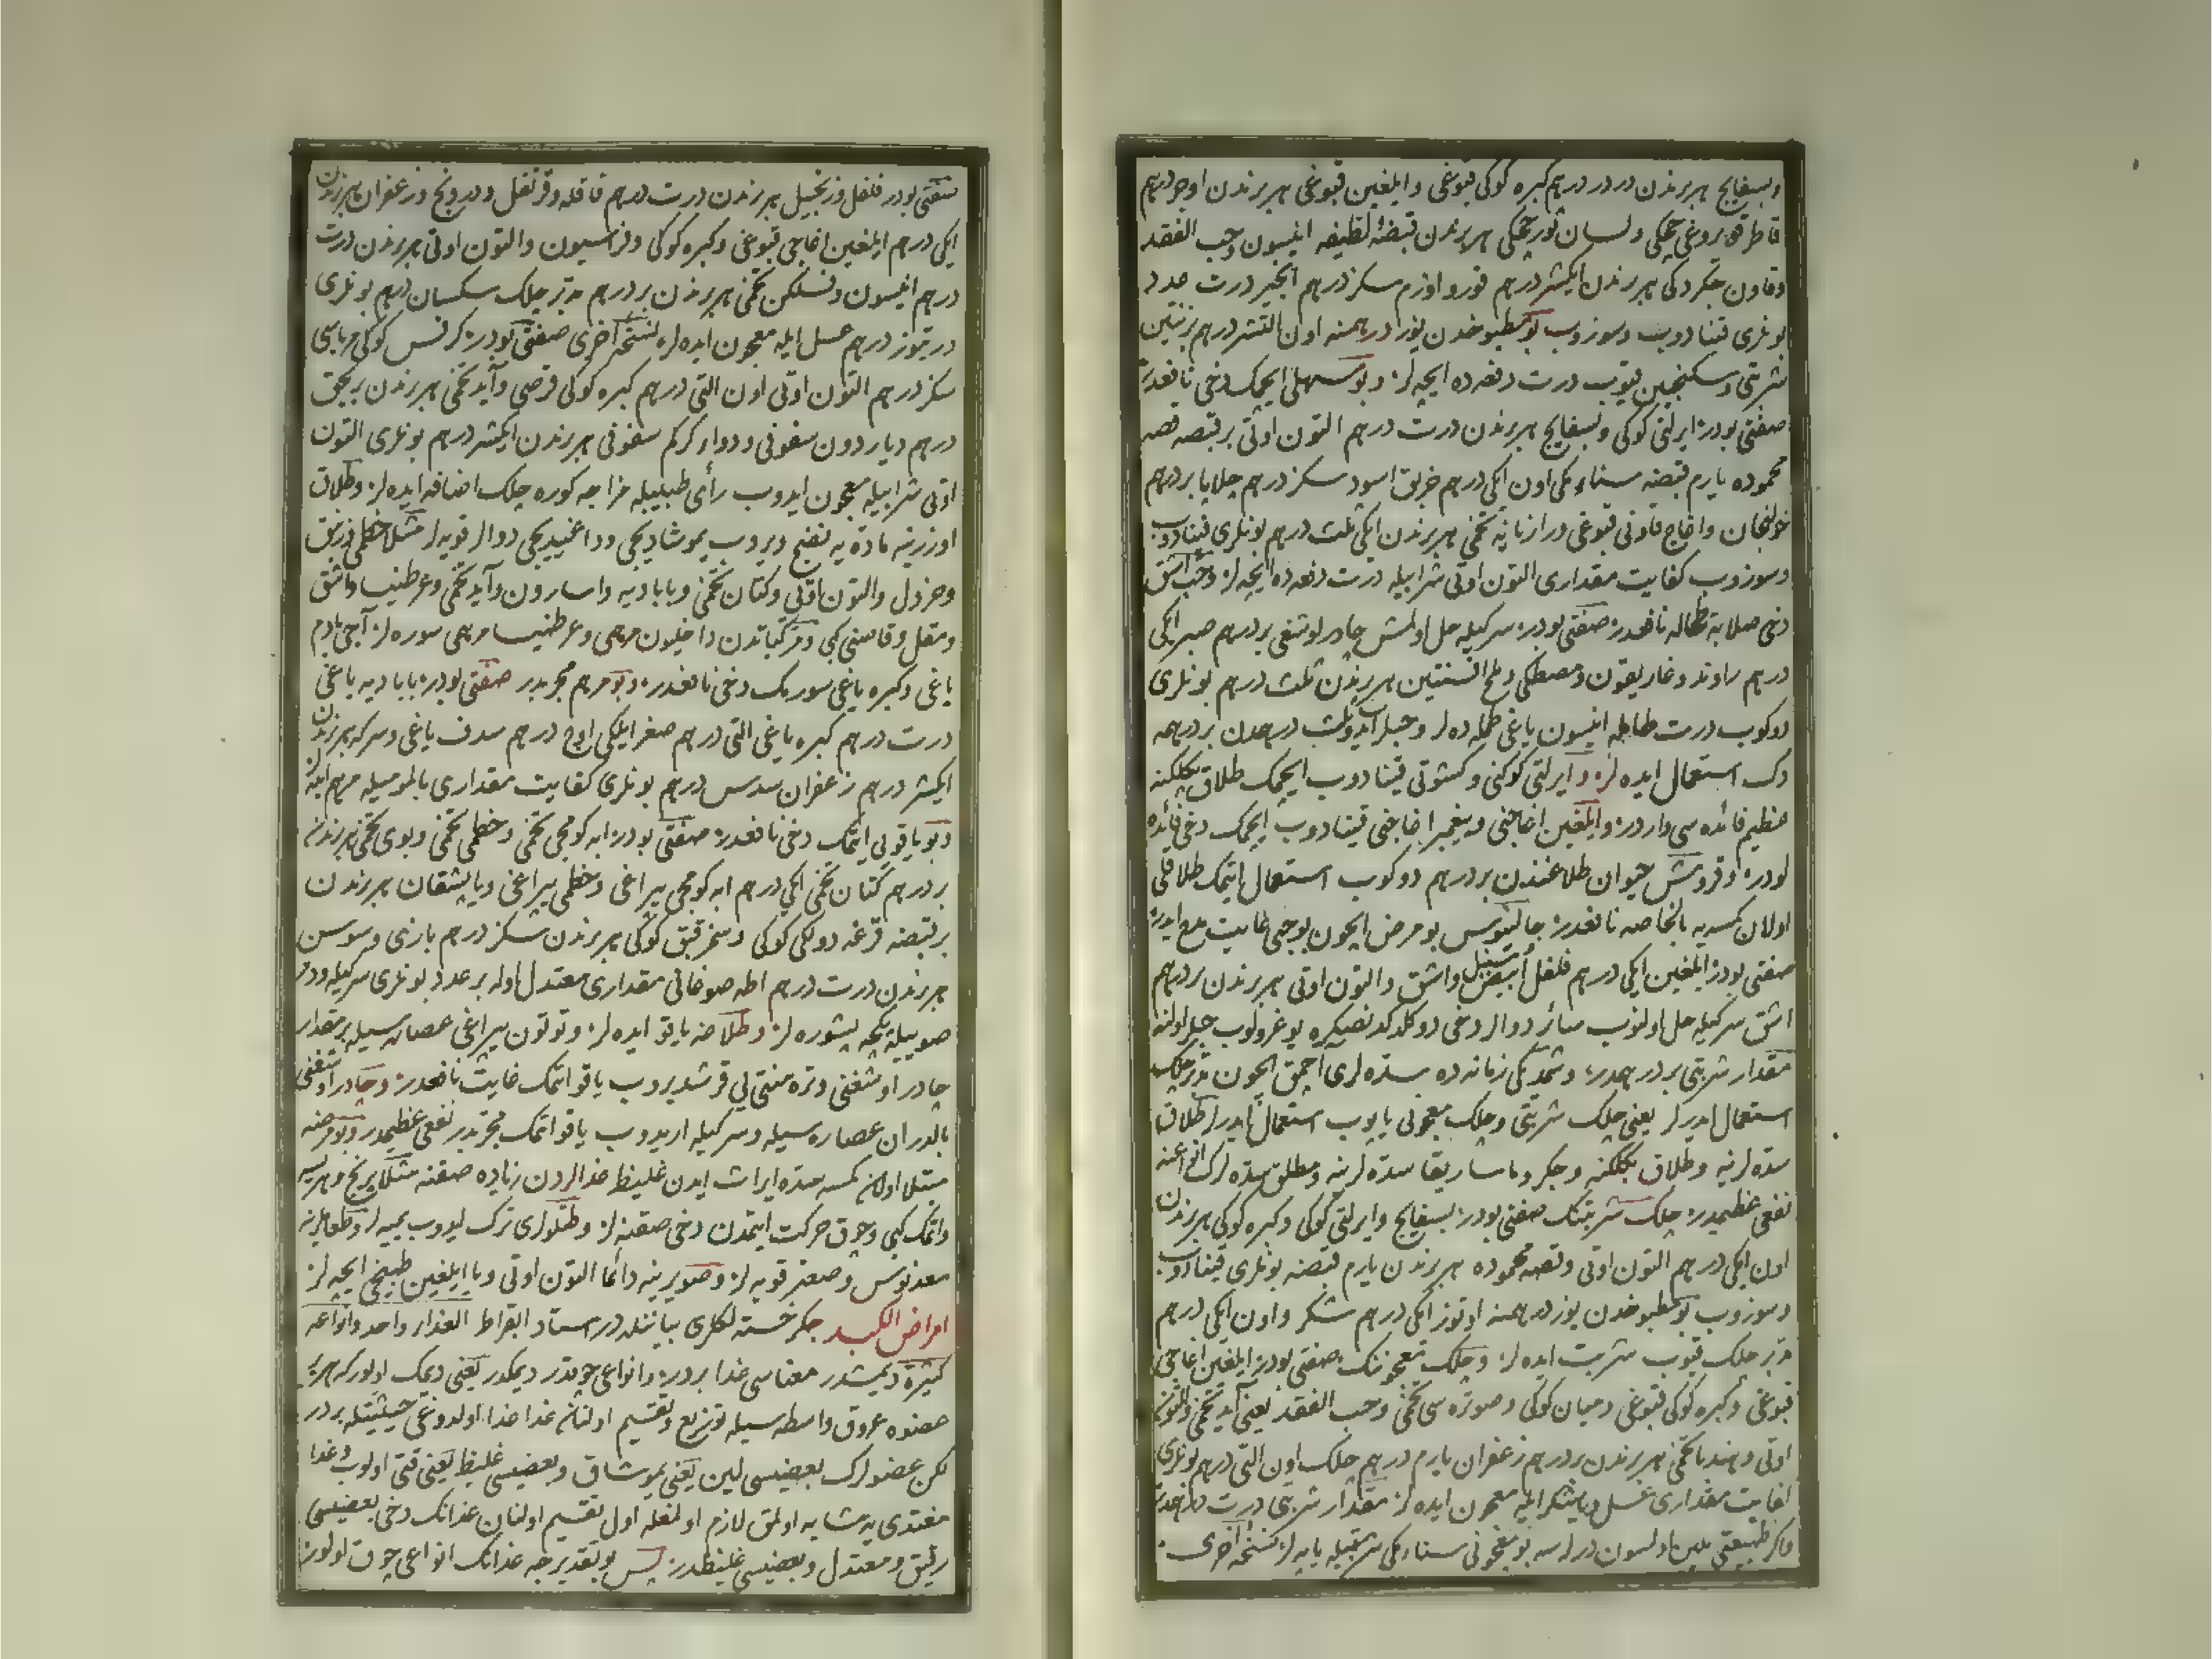 وبسفایج هر برندن درر درهم کبره کوکی قبوغی وایلغین قبوغی هر برندن اوچر درهم
چچکی ولسان ثور چچکی هر برندن قبضهٔ لطیفه انیسون وحب الفقد
وقاون چکردکی هر برندن ایکیشر درهم قورو اوزم سکز درهم انجیر درت عدد
بونلری قینادوب وسوزوب بو مطبوخدن یوز درهمنه اون التیشر درهم بزنتین
شربتی وسکنجبین قیوب درت دفعه ده ایچه لر وبو مسهلی ایچمک دخی نافعدر
صفتی بودر ایرلتی کوکی وبسفایج هر برندن درت درهم التون اوتی بر قبضه قصه
محموده یارم قبضه سناء مکی اون ایکی درهم خربق اسود سکز درهم جلاپا بر درهم
خولنجان واغاج قاونی قبوغی ورازیانه تخمی هر برندن ایکی ثلث درهم بونلری قینادوب
وسوزوب کفایت مقداری التون اوتی شرابیله درت دفعه ده ایچه لر وحب اشق
دخی صلابة طحاله نافعدر صفتی بودر سرکیله حل اولمش جادر اوشغی بر درهم صبر ایکی
درهم راوند وغاریقون ومصطکی وملح افسنتین هر برندن ثلث درهم بونلری
دوکوب درت طامله انیسون یاغی طمله ده لر وحبلر ایدوب ثلث درهمدن بر درهمه
دک استعمال ایده لر وایرلتی کوکنی وکشوتی قینادوب ایچمک طلاق بکلکنه
عظیم فائده سی واردر وایلغین اغاجنی وپیغمبر اغاجنی قینادوب ایچمک دخی فائده
بودر وقرومش حیوان طلاغندن بر درهم دوکوب استعمال ایتمک طلاقلی
اولان کمسیه بالخاصه نافعدر جالینوس بو مرض ایچون بو حبی غایت مدح ایدر
صفتی بودر ایلغین ایکی درهم فلفل ابیض سنبل واشق والتون اوتی هر برندن بر درهم
اشق سرکیله حل اولنوب سائر دوالر دخی دوکلدکدنصکره یوغرولوب حبلر اولنه
مقدار شربتی بر درهمدر وشمدیکی زمانه ده سده لری اچمق ایچون مدبر چلک
استعمال ایدرلر یعنی چلک شربتی وچلک معجونی یاپوب استعمال ایدرلر طلاق
سده لرینه وطلاق بکلکنه وجکر وماساریقا سده لرینه ومطلق سده لرک انواعنه
نفعی عظیمدر چلک شربتنک صفتی بودر بسفایج وایرلتی کوکی وکبره کوکی هر برندن
اون ایکی درهم التون اوتی وقصه محموده هر برندن یارم قبضه بونلری قینادوب
وسوزوب بو مطبوخدن یوز درهمنه اوتوز ایکی درهم شکر واون ایکی درهم
مدبر چلک قیوب شربت ایده لر وچلک معجوننک صفتی بودر ایلغین اغاجی
قبوغی وکبره کوکی قبوغی ومیان کوکی وصوتره سی تخمی وحب الفقد یعنی آید تخمی والتون
اوتی وهندبا تخمی هر برندن بر درهم زعفران یارم درهم چلک اون التی درهم بونلری
کفایت مقداری عسل ویا شکر ایله معجون ایده لر مقدار شربتی درت درهمدر
واکر طبیعتی ملین اولسون درلرسه بو معجونی سناء مکی شربتیله یاپه لر نسخهٔ اخری
صفتی بودر فلفل وزنجبیل هر برندن درت درهم قاقله وقرنفل ودرونج وزعفران هر برندن
ایکی درهم ایلغین اغاجی قبوغی وکبره کوکی وفراسیون والتون اوتی هر برندن درت
درهم انیسون وفسلکن تخمی هر برندن بر درهم مدبر چلک سکسان درهم بونلری
درت یوز درهم عسل ایله معجون ایده لر نسخهٔ اخری صفتی بودر کرفس کوکی مرباسی
سکز درهم التون اوتی اون التی درهم کبره کوکی قرصی وآید تخمی هر برندن بر بچق
درهم دیاردون سفوفی ودواء کرکم سفوفی هر برندن ایکیشر درهم بونلری التون
اوتی شرابیله معجون ایدوب رأی طبیبیله مزاجه کوره چلک اضافه ایده لر وطلاق
اوزرینه ماده یه نضج ویروب یومشادیجی وداغیدیجی دوالر قویه لر مثلا خطمی وزنبق
وخردل والتون اوتی وکتان تخمی وبابادیه واسارون وآید تخمی وعرطنیسا واشق
ومقل وقاصنی کبی ومرکباتدن داخلیون مرهمی وعرطنیسا مرهمی سوره لر آجی بادم
یاغی وکبره یاغی سورمک دخی نافعدر وبو مرهم مجربدر صفتی بودر بابادیه یاغی
درت درهم کبره یاغی التی درهم صغر ایلکی اوچ درهم سدف یاغی وسرکه هر برندن
ایکیشر درهم زعفران سدس درهم بونلری کفایت مقداری بالمومیله مرهم ایلیه لر
وبو یاقویی ایتمک دخی نافعدر صفتی بودر ابه کومجی تخمی وخطمی تخمی وبوی تخمی هر برندن
بر درهم کتان تخمی ایکی درهم ابه کومجی یپراغی وخطمی یپراغی ویاپشقان هر برندن
بر قبضه قرغه دولکی کوکی وسخرقبق کوکی هر برندن سکز درهم بازنی وسوسن
هر برندن درت درهم اطه صوغانی مقداری معتدل اوله بر عدد بونلری سرکیله ودمر
صوییله پکجه پشوره لر وطلاغه یاقو ایده لر وتوتون یپراغی عصاره سیله بر مقدار
جادر اوشغنی وتره منتی یی قرشدیروب یاقو ایتمک غایت نافعدر وجادر اوشغنی
بالدران عصاره سیله وسرکیله اریدوب یاقو ایتمک مجربدر نفعی عظیمدر وبو مرضه
مبتلا اولان کمسه سده ایراث ایدن غلیظ غذالردن زیاده صقنه مثلا پرنج وهریسه
واتمک کبی وچوق حرکت ایتمدن دخی صقنه لر وطتلولری ترک ایدوب یمیه لر وطعاملرینه
معدنوس وصعتر قویه لر وصویرینه دائما التون اوتی ویا ایلغین طبیخی ایچه لر
امراض الکبد جکر خسته لکلری بیاننده در استاد ابقراط الغذاء واحد وانواعه
کثیرة دیمشدر معناسی غذا بردر وانواعی چوقدر دیمکدر یعنی دیمک اولور که هر بر
عضوه عروق واسطه سیله توزیع وتقسیم اولنان غذا غذا اولدوغی حیثیتله بردر
لکن عضولرک بعضیسی لین یعنی یومشاق وبعضیسی غلیظ یعنی قتی اولوب وغذا
مغتذی یه مشابه اولمق لازم اولمغله اول تقسیم اولنان غذانک دخی بعضیسی
رقیق ومعتدل وبعضیسی غلیظدر پس بو تقدیرجه غذانک انواعی چوق اولور